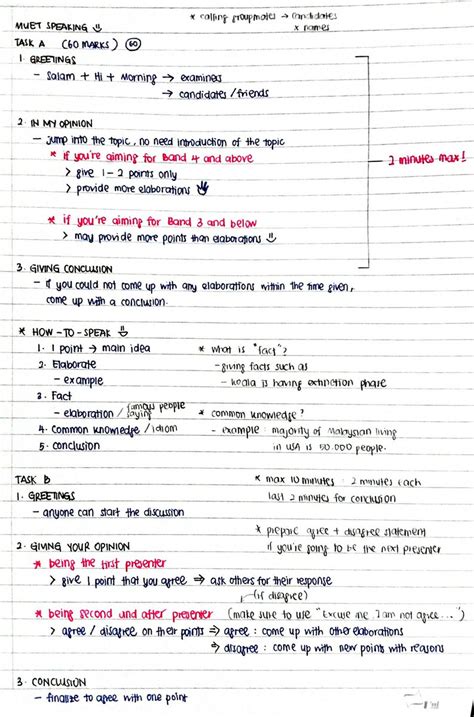 * calling groupmates → candidates
x names
MUET SPEAKING
TASK A (60 MARKS) 60
1. GREETINGS
- Salam + Hi + Morning → examiners
→ candidates / friends
2. IN MY OPINION
- jump into the topic, no need introduction of the topic
* if you're aiming for Band 4 and above
> give 1-2 points only
2 minutes max!
> provide more elaborations
* if you're aiming for Band 3 and below
> may provide more points than elaborations
3. GIVING CONCLUSION
- if you could not come up with any elaborations within the time given,
come up with a conclusion.
* HOW-TO-SPEAK
1. 1 point → main idea
2. Elaborate
- example
3. Fact
- elaboration / famous people saying
4. Common knowledge / idiom
5. conclusion
* what is "fact"?
- giving facts such as
- koala is having extinction phase
* common knowledge?
- example : majority of Malaysian living
in USA is 50.000 people.
TASK B
* max 10 minutes : 2 minutes each
last 2 minutes for conclusion
1. GREETINGS
- anyone can start the discussion
* prepare agree + disagree statement
if you're going to be the next presenter
2. GIVING YOUR OPINION
* being the first presenter
> give 1 point that you agree ⇒ ask others for their response
(if disagree)
* being second and after presenter (make sure to use "Excuse me I am not agree...")
> agree / disagree on their points ⇒ agree : come up with other elaborations
⇒ disagree : come up with new points with reasons
3. CONCLUSION
- finalize to agree with one point